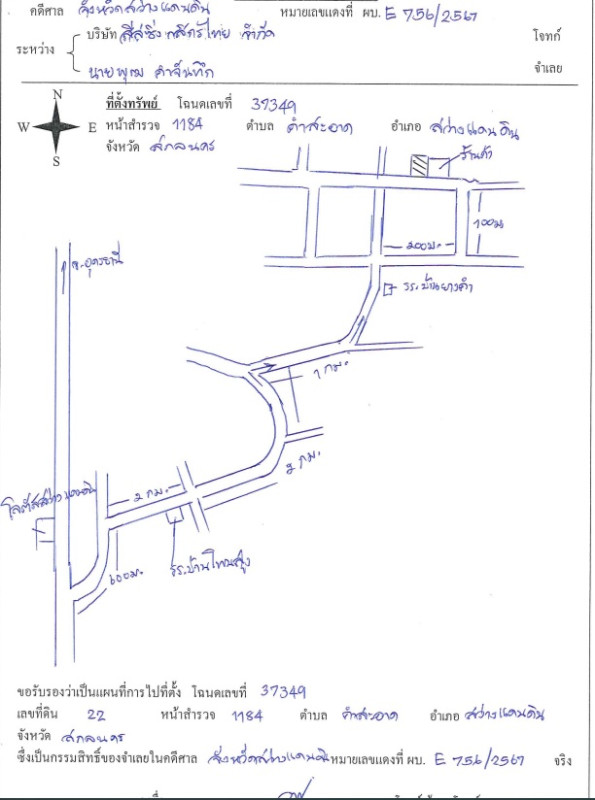 คดีศาล จังหวัดสว่างแดนดิน หมายเลขแดงที่ ผบ. E 756/2567
ระหว่าง บริษัท ลีสซิ่งกสิกรไทย จำกัด โจทก์
นาย จำเลย
N
W E
S
ที่ตั้งทรัพย์ โฉนดเลขที่ 37349
หน้าสำรวจ 1184 ตำบล คำสะอาด อำเภอ สว่างแดนดิน
จังหวัด สกลนคร
ร้านค้า
100ม
200ม.
จ.อุดรธานี
รร.บ้านยางคำ
1 กม.
2 กม.
2 กม.
โลตัสสว่างแดนดิน
600ม.
รร.บ้านโพนสูง
ขอรับรองว่าเป็นแผนที่การไปที่ตั้ง โฉนดเลขที่ 37349
เลขที่ดิน 22 หน้าสำรวจ 1184 ตำบล คำสะอาด อำเภอ สว่างแดนดิน
จังหวัด สกลนคร
ซึ่งเป็นกรรมสิทธิ์ของจำเลยในคดีศาล จังหวัดสว่างแดนดิน หมายเลขแดงที่ ผบ. E 756/2567 จริง